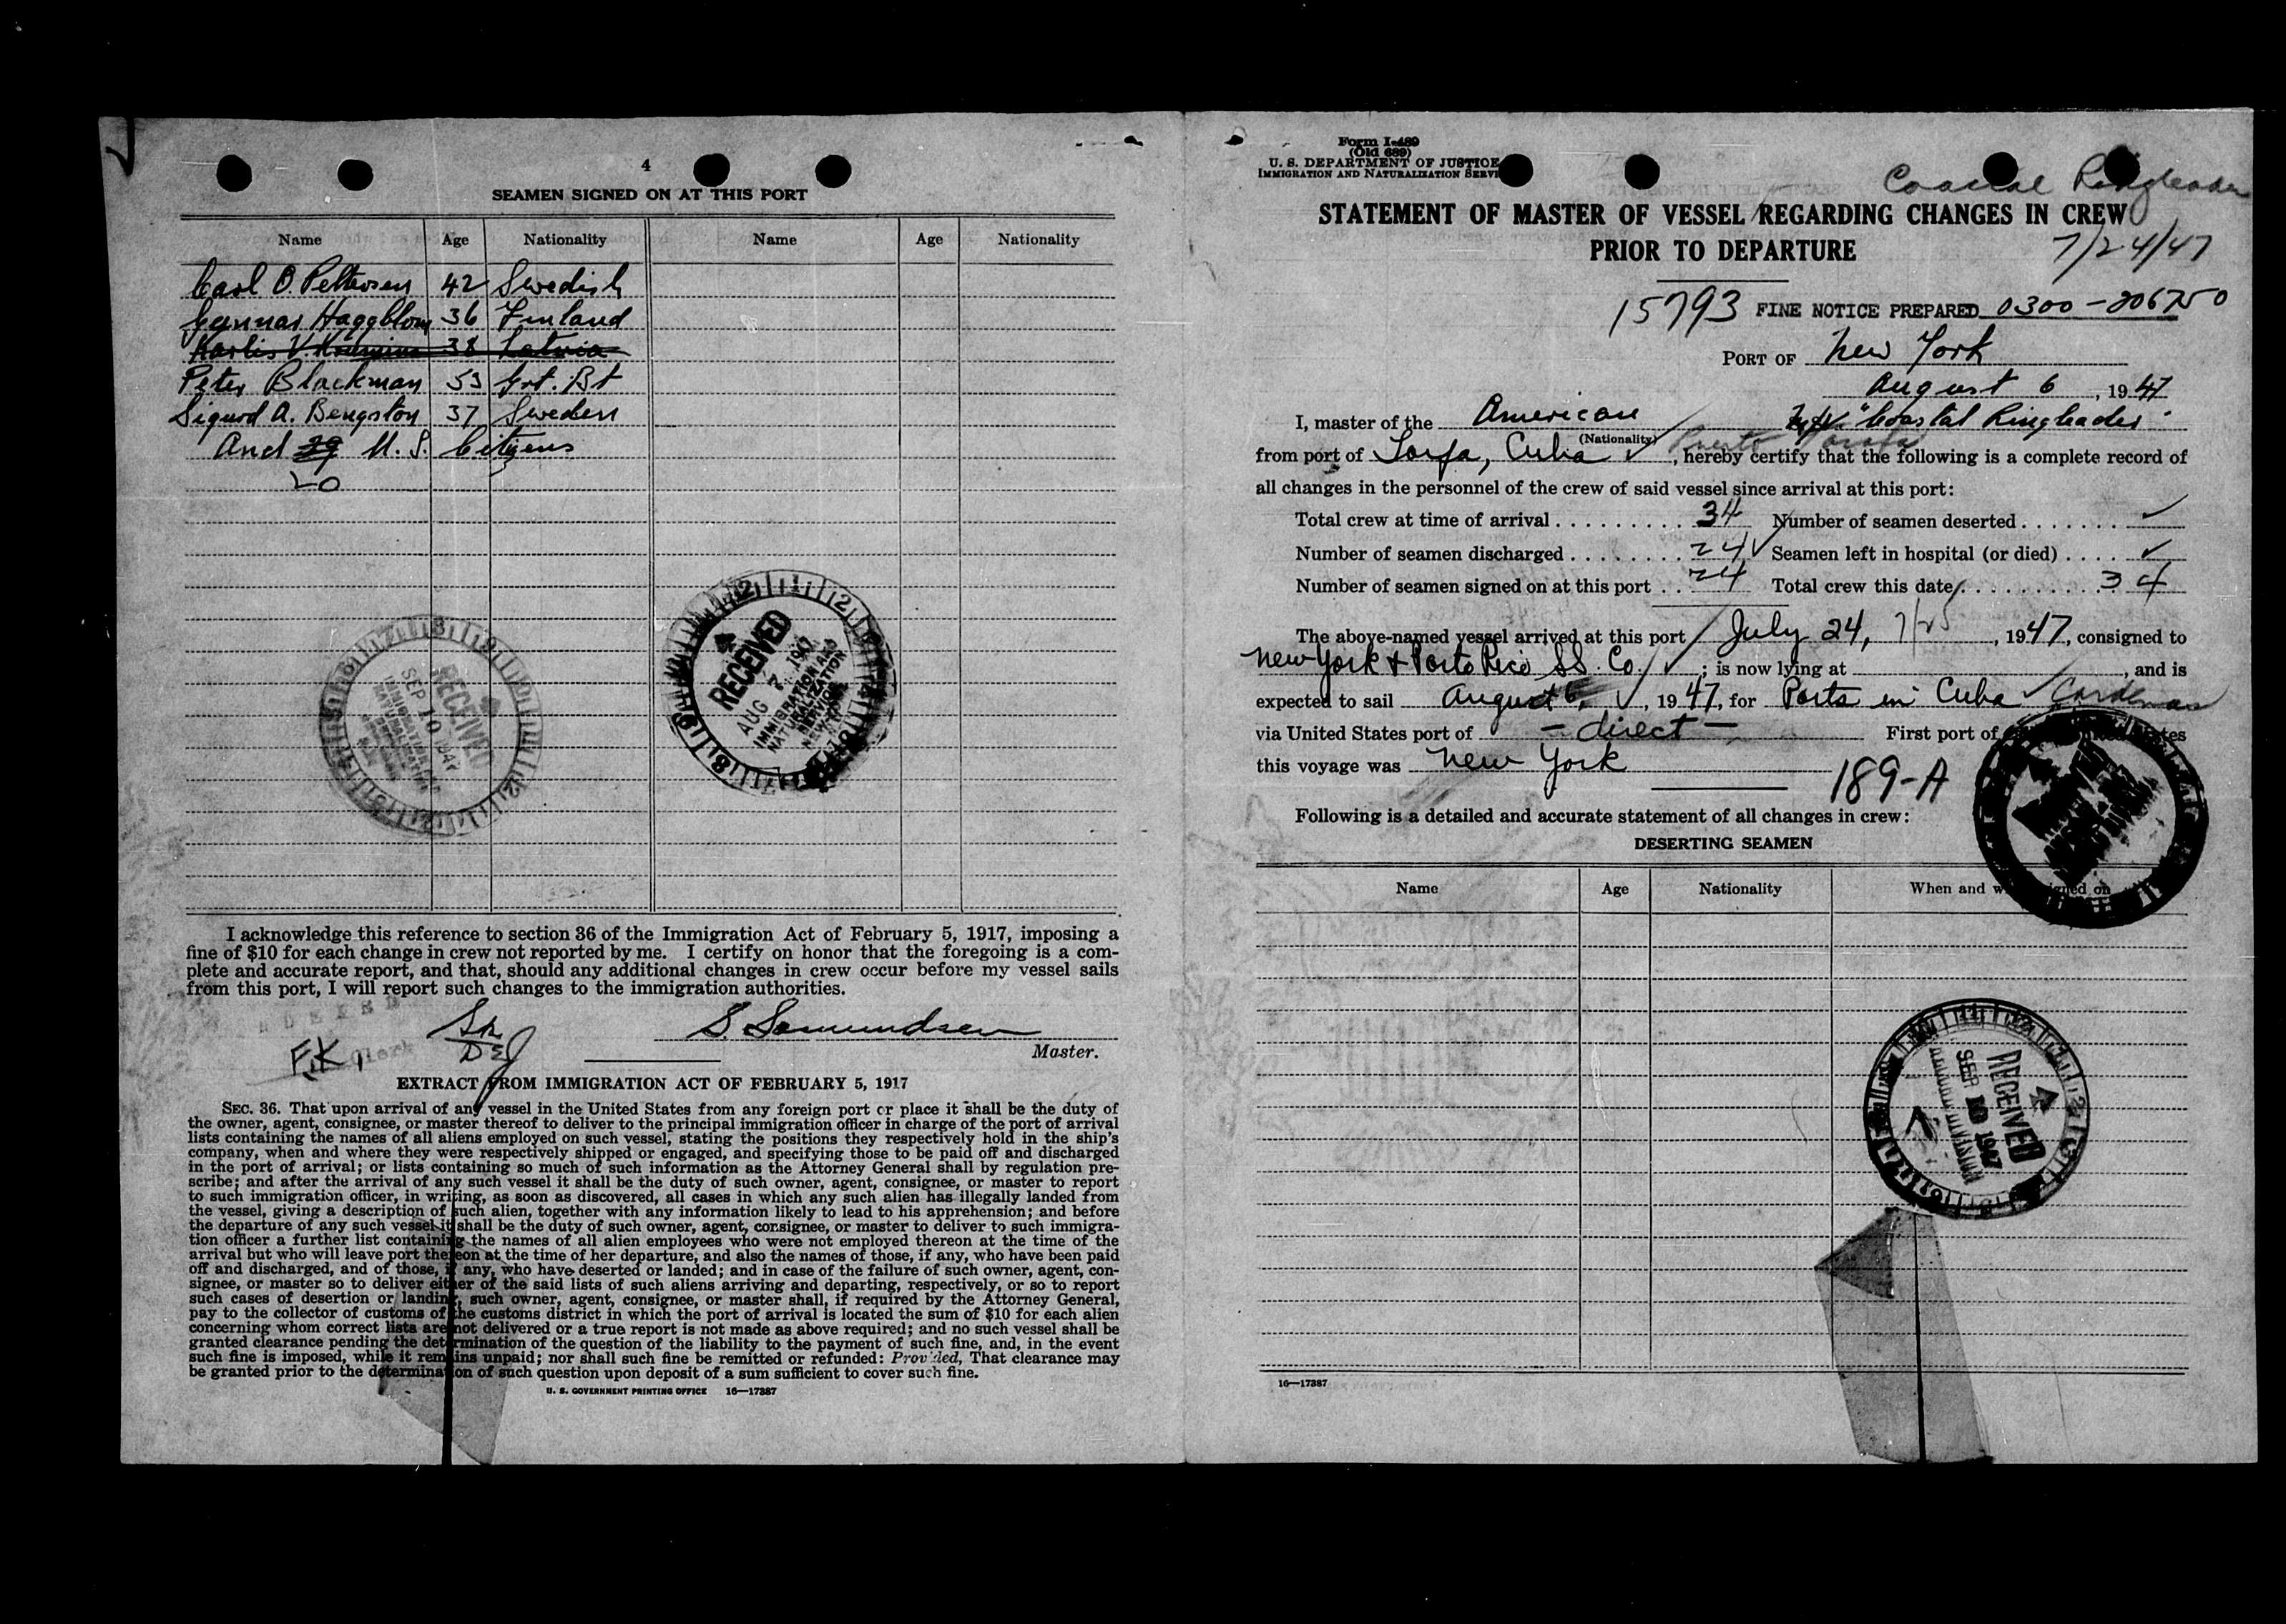 4
SEAMEN SIGNED ON AT THIS PORT
Name Age Nationality Name Age Nationality
Carl O. Pettersen 42 Swedish
Gunnar Haggblom 36 Finland
Karlis V. 38 Latvia
Peter Blackman 53 Grt. Bt
Sigurd A. Bengston 37 Sweden
And 29 U. S. Citizens
20
RECEIVED
AUG 7 1947
IMMIGRATION AND
NATURALIZATION
SERVICE
NEW YORK
RECEIVED
SEP 10 1947
IMMIGRATION
NATURALIZATION
I acknowledge this reference to section 36 of the Immigration Act of February 5, 1917, imposing a
fine of $10 for each change in crew not reported by me. I certify on honor that the foregoing is a com-
plete and accurate report, and that, should any additional changes in crew occur before my vessel sails
from this port, I will report such changes to the immigration authorities.
S. Semundsen
Master.
F.K. Clerk
EXTRACT FROM IMMIGRATION ACT OF FEBRUARY 5, 1917
SEC. 36. That upon arrival of any vessel in the United States from any foreign port or place it shall be the duty of
the owner, agent, consignee, or master thereof to deliver to the principal immigration officer in charge of the port of arrival
lists containing the names of all aliens employed on such vessel, stating the positions they respectively hold in the ship's
company, when and where they were respectively shipped or engaged, and specifying those to be paid off and discharged
in the port of arrival; or lists containing so much of such information as the Attorney General shall by regulation pre-
scribe; and after the arrival of any such vessel it shall be the duty of such owner, agent, consignee, or master to report
to such immigration officer, in writing, as soon as discovered, all cases in which any such alien has illegally landed from
the vessel, giving a description of such alien, together with any information likely to lead to his apprehension; and before
the departure of any such vessel it shall be the duty of such owner, agent, consignee, or master to deliver to such immigra-
tion officer a further list containing the names of all alien employees who were not employed thereon at the time of the
arrival but who will leave port thereon at the time of her departure, and also the names of those, if any, who have been paid
off and discharged, and of those, if any, who have deserted or landed; and in case of the failure of such owner, agent, con-
signee, or master so to deliver either of the said lists of such aliens arriving and departing, respectively, or so to report
such cases of desertion or landing, such owner, agent, consignee, or master shall, if required by the Attorney General,
pay to the collector of customs of the customs district in which the port of arrival is located the sum of $10 for each alien
concerning whom correct lists are not delivered or a true report is not made as above required; and no such vessel shall be
granted clearance pending the determination of the question of the liability to the payment of such fine, and, in the event
such fine is imposed, while it remains unpaid; nor shall such fine be remitted or refunded: Provided, That clearance may
be granted prior to the determination of such question upon deposit of a sum sufficient to cover such fine.
U. S. GOVERNMENT PRINTING OFFICE 16—17387
Form I-489
(Old 689)
U. S. DEPARTMENT OF JUSTICE
IMMIGRATION AND NATURALIZATION SERVI
Coastal Ringleader
STATEMENT OF MASTER OF VESSEL REGARDING CHANGES IN CREW
PRIOR TO DEPARTURE
7/24/47
15793 FINE NOTICE PREPARED 0300-206750
PORT OF New York
August 6, 1947
I, master of the American M/V "Coastal Ringleader"
(Nationality)
from port of Tarfa, Cuba Puerto Tarafa, hereby certify that the following is a complete record of
all changes in the personnel of the crew of said vessel since arrival at this port:
Total crew at time of arrival 34 Number of seamen deserted ✓
Number of seamen discharged 24 ✓ Seamen left in hospital (or died) ✓
Number of seamen signed on at this port 24 Total crew this date 34
The above-named vessel arrived at this port July 24, 7/25, 1947, consigned to
New York & Porto Rico SS. Co. ✓; is now lying at , and is
expected to sail August 6, ✓, 1947, for Ports in Cuba ✓ Cardenas
via United States port of — direct — First port of
this voyage was New York
189-A
Following is a detailed and accurate statement of all changes in crew:
DESERTING SEAMEN
Name Age Nationality When and signed on
RECEIVED
SEP 10 1947
DIVISION
16—17387